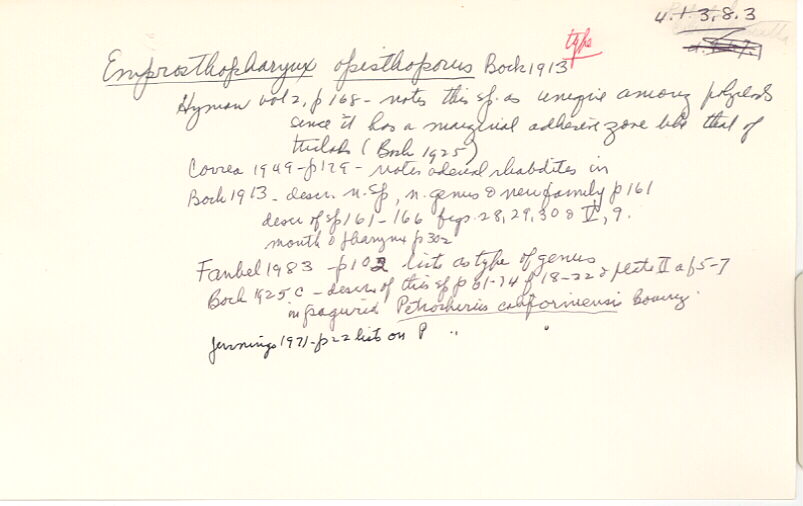 4.1.3.8.3
type
Emprosthopharynx opisthoporus Bock 1913
Hyman vol 2, p 168 - notes this sp. as unique among polyclads
since it has a marginal adhesive zone like that of
triclads (Bock 1925)
Correa 1949 - p 179 - notes adenal rhabdites in
Bock 1913 - descr. n. sp, n. genus & new family p 161
descr of sp 161-166 figs. 28, 29, 30 & V, 9.
mouth & pharynx p 302
Faubel 1983 - p 102 lists as type of genus
Bock 1925 c - descr. of this sp p 61-74 f 18-22 & plate II a f 5-7
on pagurid Petrochirus californiensis Bouvier
Jennings 1971 - p 22 lists on P " "